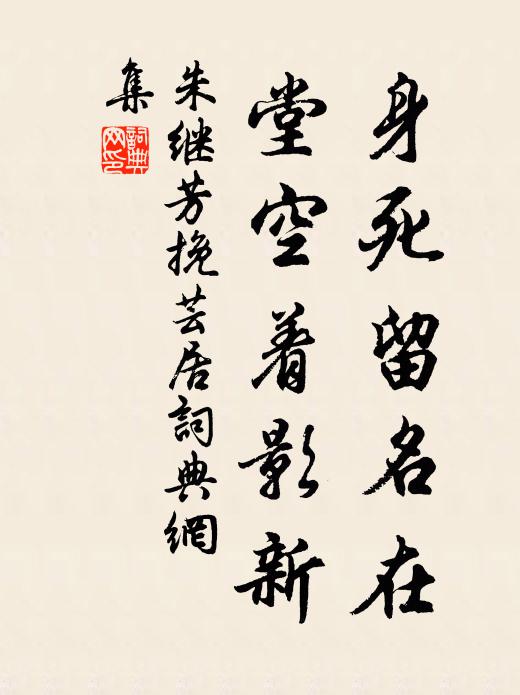 身死留名在
堂空着影新
朱继芳挽芸居詞典網
集
詞典
网印